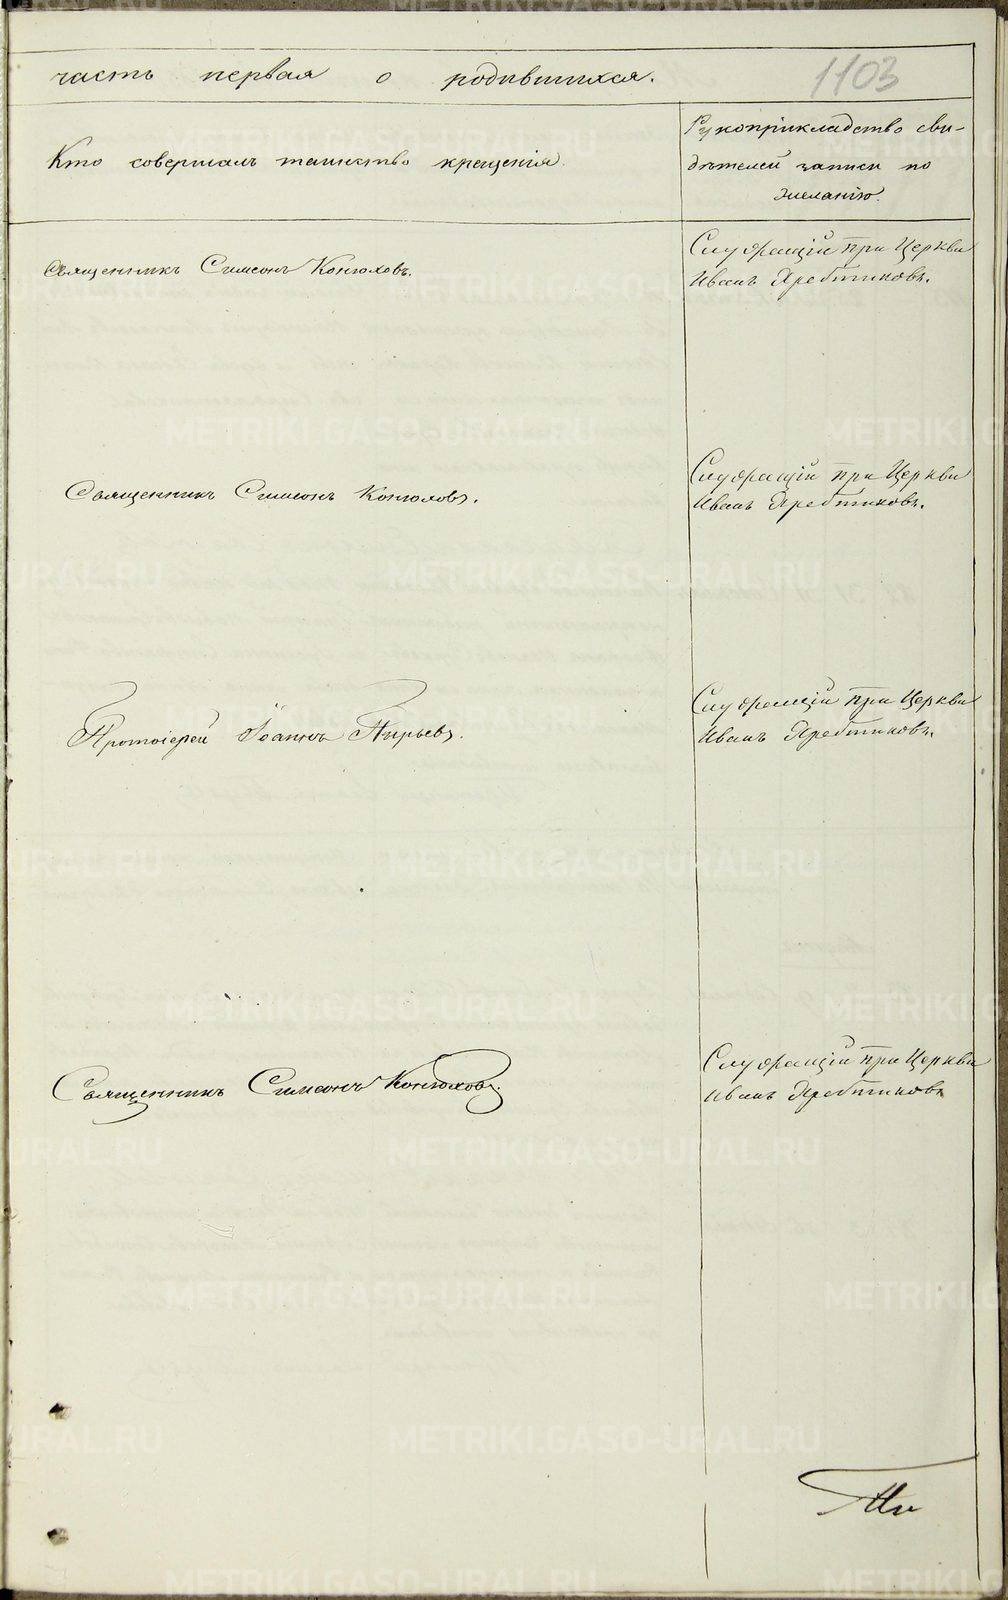 часть первая о родившихся.
1103
Кто совершалъ таинство крещенія.
Рукоприкладство сви-
дѣтелей записи по
желанію.
Священникъ Симеонъ Конюховъ.
Служащій при Церкви
Иванъ Яребтиковъ.
Священникъ Симеонъ Конюховъ.
Служащій при Церкви
Иванъ Яребтиковъ.
Протоіерей Іоаннъ Пырьевъ.
Служащій при Церкви
Иванъ Яребтиковъ.
Священникъ Симеонъ Конюховъ.
Служащій при Церкви
Иванъ Яребтиковъ
METRIKI.GASO-URAL.RU